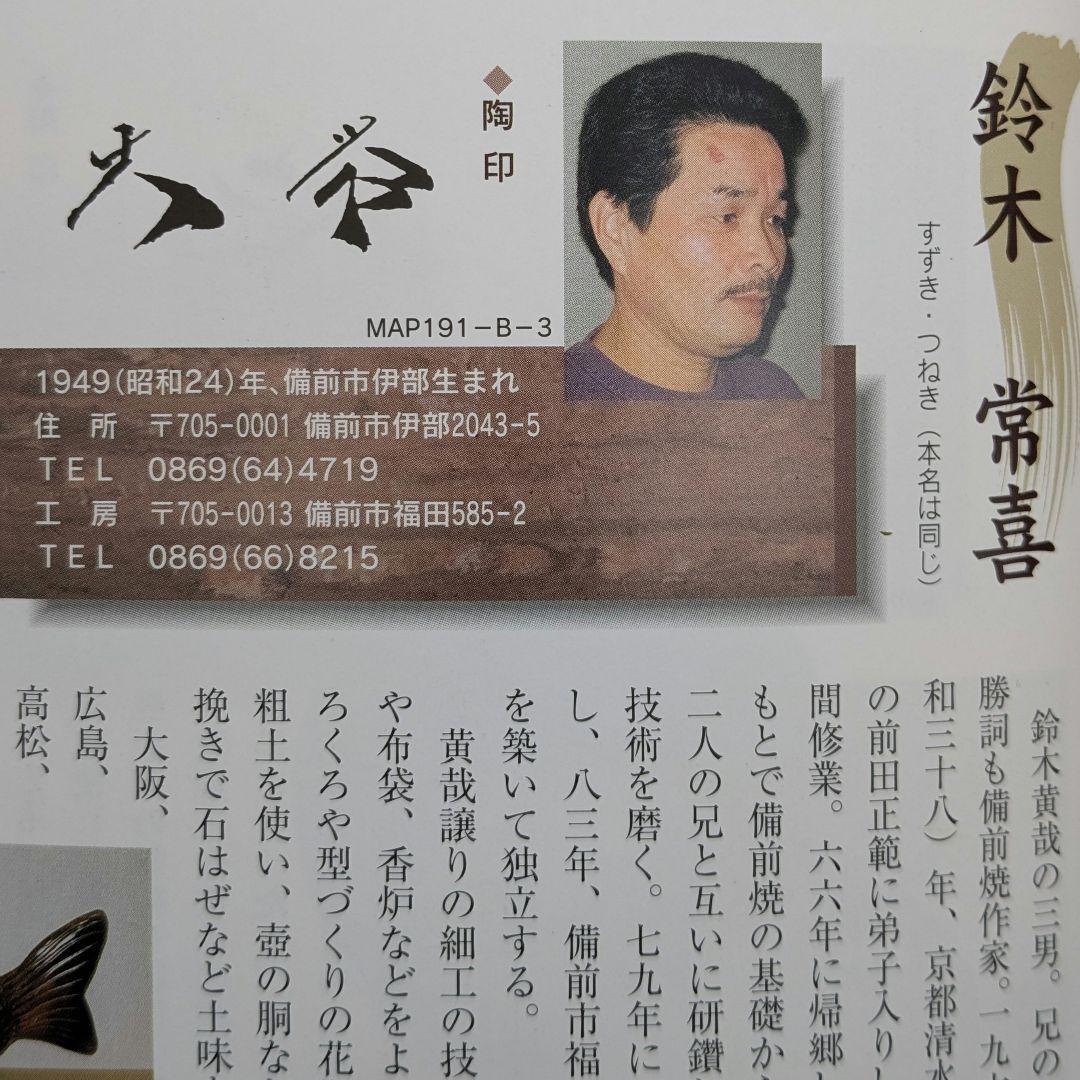 鈴木 常喜
すずき・つねき（本名は同じ）
◆陶印
MAP191－B－3
1949(昭和24)年、備前市伊部生まれ
住　所　〒705-0001 備前市伊部2043-5
ＴＥＬ　0869(64)4719
工　房　〒705-0013 備前市福田585-2
ＴＥＬ　0869(66)8215
鈴木黄哉の三男。兄の
勝詞も備前焼作家。一九
和三十八）年、京都清水
の前田正範に弟子入りし
間修業。六六年に帰郷
もとで備前焼の基礎か
二人の兄と互いに研鑽
技術を磨く。七九年に
し、八三年、備前市福
を築いて独立する。
黄哉譲りの細工の技
や布袋、香炉などをよ
ろくろや型づくりの花
粗土を使い、壺の胴な
挽きで石はぜなど土味
大阪、
広島、
高松、